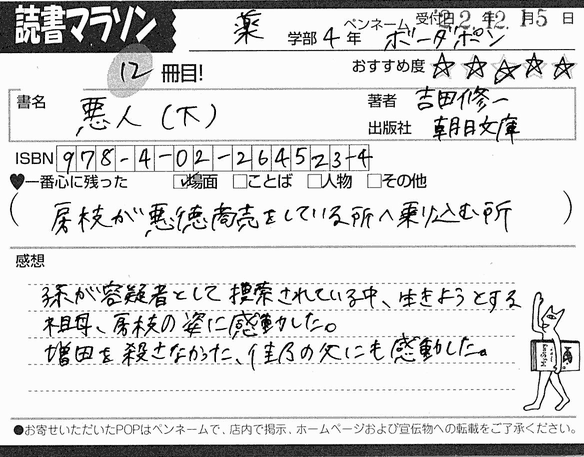 読書マラソン
薬 学部 4 年 ペンネーム ボーダポン 受付日 22年12月15日
12 冊目! おすすめ度 ☆☆☆☆☆
書名 悪人(下) 著者 吉田修一
出版社 朝日文庫
ISBN 978-4-02-264523-4
♥一番心に残った ☑場面 □ことば □人物 □その他
(房枝が悪徳商売をしている所へ乗り込む所)
感想
孫が容疑者として捜索されている中、生きようとする
祖母、房枝の姿に感動した。
増田を殺さなかった、佳乃の父にも感動した。
●お寄せいただいたPOPはペンネームで、店内で掲示、ホームページおよび宣伝物への転載をご了承ください。